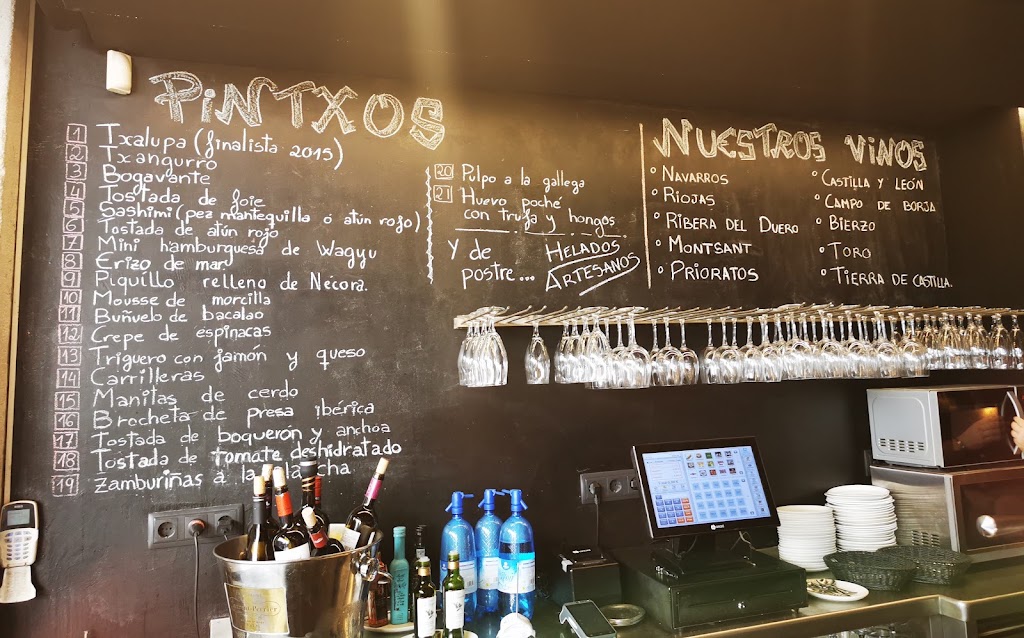 PiNTXOS
1 Txalupa (finalista 2015)
2 Txangurro
3 Bogavante
4 Tostada de foie
5 Sashimi (pez mantequilla ó atún rojo)
6 Tostada de atún rojo
7 Mini hamburguesa de Wagyu
8 Erizo de mar
9 Piquillo relleno de Nécora.
10 Mousse de morcilla
11 Buñuelo de bacalao
12 Crepe de espinacas
13 Triguero con jamón y queso
14 Carrilleras
15 Manitas de cerdo
16 Brocheta de presa ibérica
17 Tostada de boquerón y anchoa
18 Tostada de tomate deshidratado
19 Zamburiñas a la
20 Pulpo a la gallega
21 Huevo poché
con trufa y hongos
Y de
postre...
HELADOS
ARTESANOS
NUESTROS ViNOS
° NAVARROS
° RIOJAS
° RIBERA DEL DUERO
° MONTSANT
° PRIORATOS
° CASTILLA Y LEÓN
° CAMPO DE BORJA
° BIERZO
° TORO
° TIERRA DE CASTILLA.